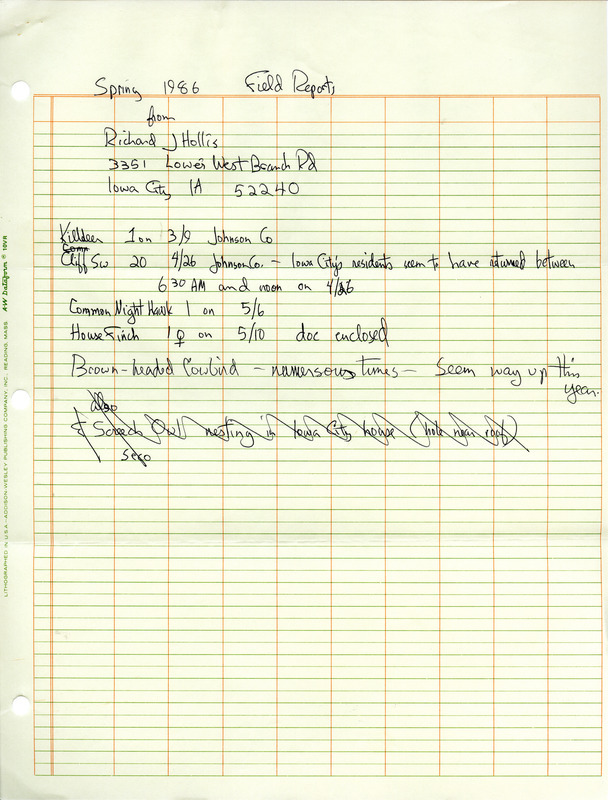 Spring 1986 Field Reports
from
Richard J Hollis
3351 Lower West Branch Rd
Iowa City IA 52240
Killdeer 1 on 3/9 Johnson Co
Cliff Sw 20 4/26 Johnson Co. - Iowa City's residents seem to have returned between
6 30 AM and noon on 4/26
Common Night Hawk 1 on 5/6
House Finch 1 ♀ on 5/10 doc enclosed
Brown-headed Cowbird - numersous times - Seem way up this
year.
also
& Screech Owl nesting in Iowa City house (hole near roof)
LITHOGRAPHED IN U.S.A.-ADDISON-WESLEY PUBLISHING COMPANY, INC., READING, MASS. AW Dataform ® 10VR